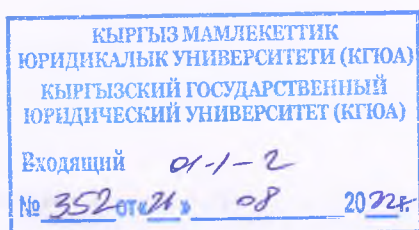 КЫРГЫЗ МАМЛЕКЕТТИК
ЮРИДИКАЛЫК УНИВЕРСИТЕТИ (КГЮА)
КЫРГЫЗСКИЙ ГОСУДАРСТВЕННЫЙ
ЮРИДИЧЕСКИЙ УНИВЕРСИТЕТ (КГЮА)
Входящий 01-1-2
№ 352 от « » 08 20 г